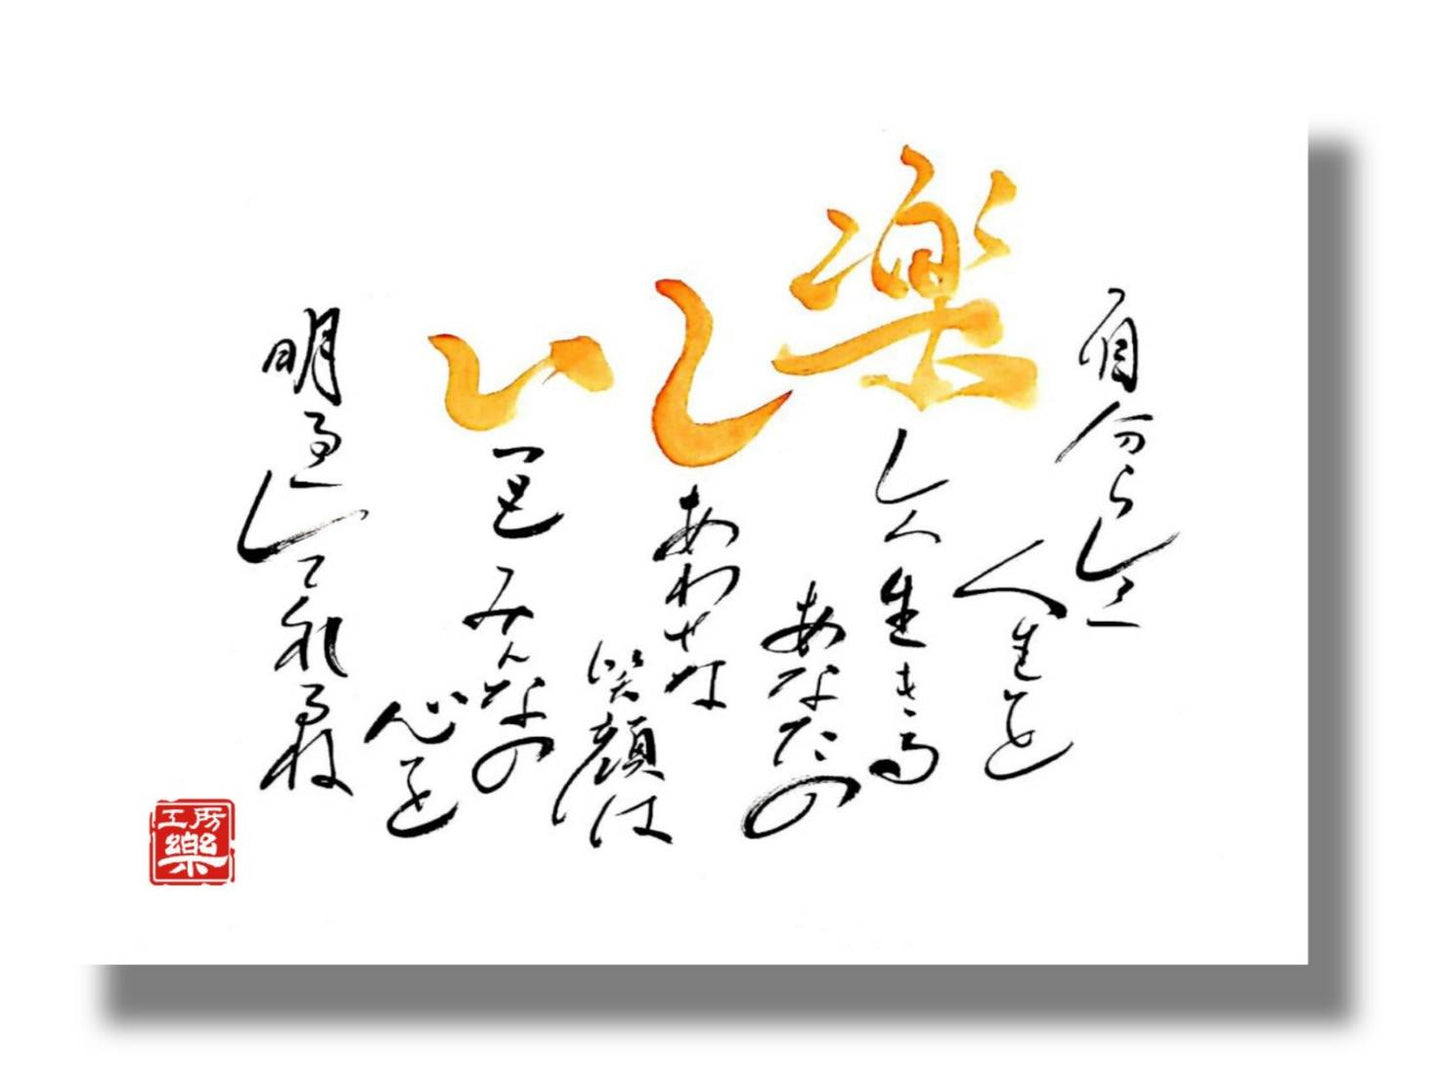 自分らしい
人生を
楽しく生きる
あなたの
しあわせな
笑顔は
いつもみんなの
心を
明るくしてくれるね
工房
樂